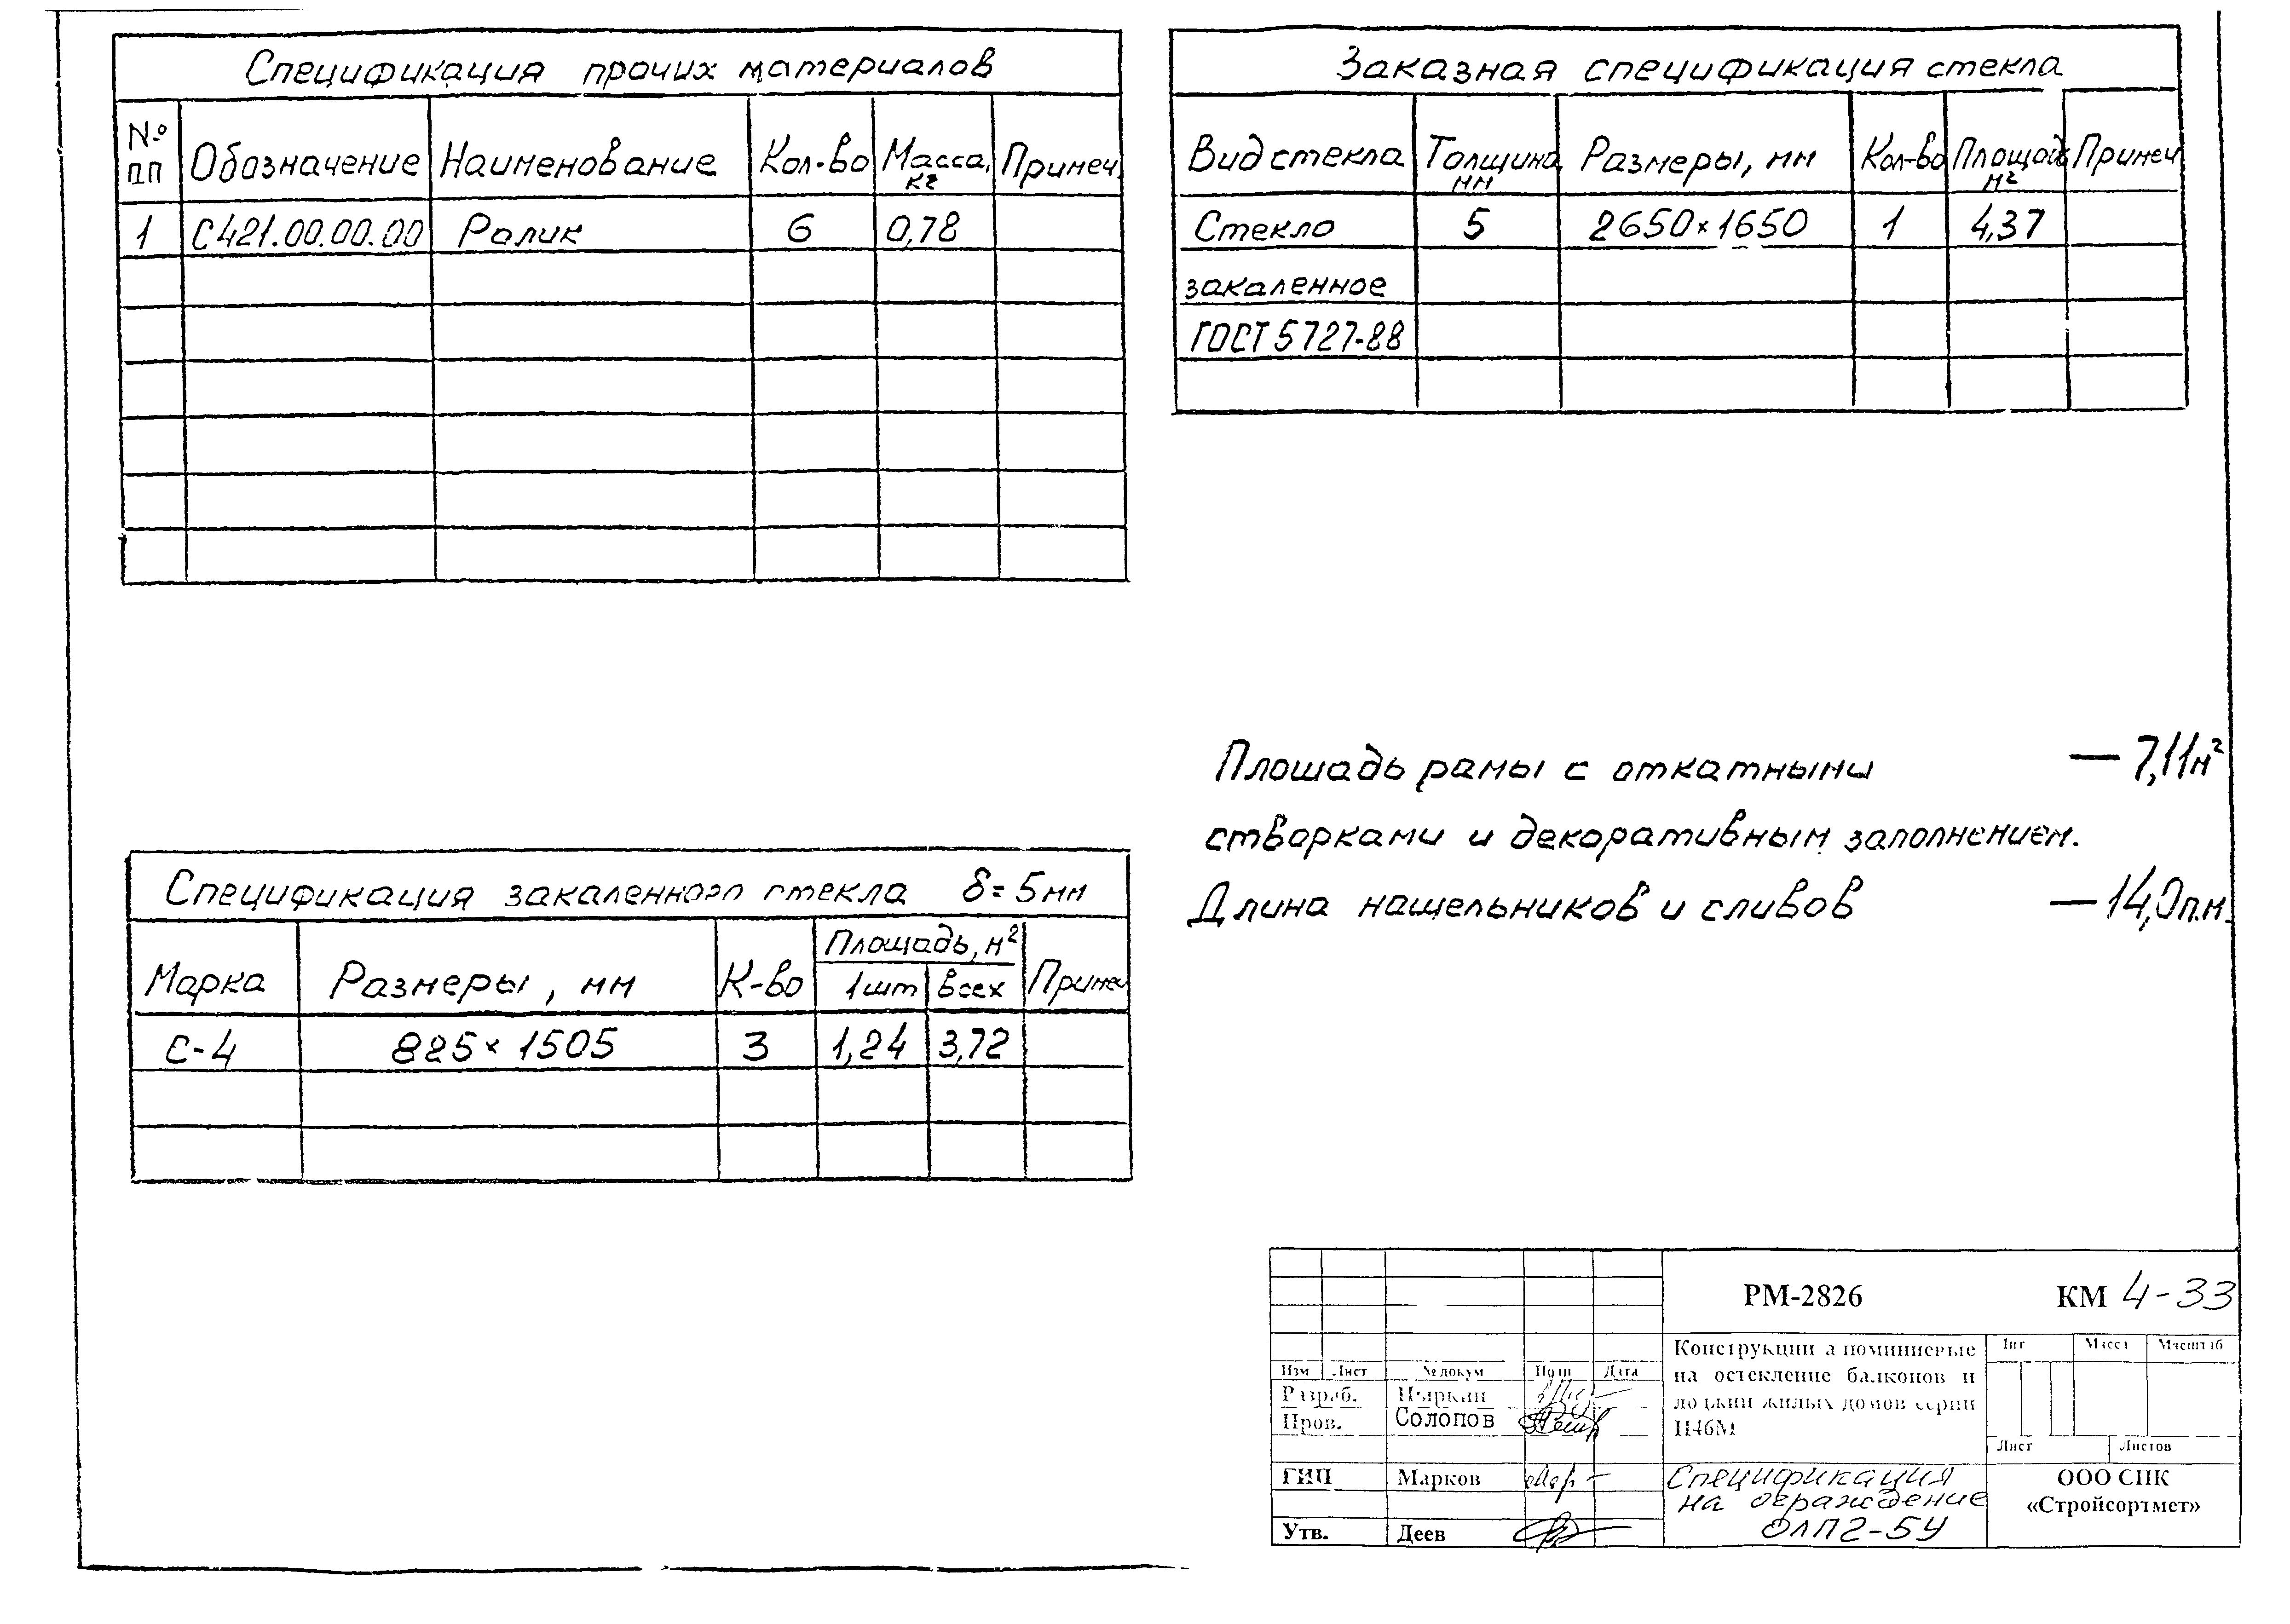 Спецификация прочих материалов
№ пп Обозначение Наименование Кол-во Масса, кг Примеч.
1 С421.00.00.00 Ролик 6 0,78
Заказная спецификация стекла
Вид стекла Толщина мм Размеры, мм Кол-во Площадь м² Примеч
Стекло 5 2650×1650 1 4,37
закаленное
ГОСТ 5727-88
Площадь рамы с откатными — 7,11м²
створками и декоративным заполнением.
Длина нащельников и сливов — 14,0п.м.
Спецификация закаленного стекла δ=5мм
Марка Размеры, мм К-во Площадь, м² Примеч
1шт всех
С-4 825×1505 3 1,24 3,72
РМ-2826 КМ 4-33
Конструкции алюминиевые
на остекление балконов и
лоджий жилых домов серии
П46М
Лит Масса Масштаб
Изм Лист № докум Подп Дата
Разраб. Цыркин
Пров. Солопов
Лист Листов
ГИП Марков
Утв. Деев
Спецификация
на ограждение
ОЛП2-5У
ООО СПК
«Стройсортмет»